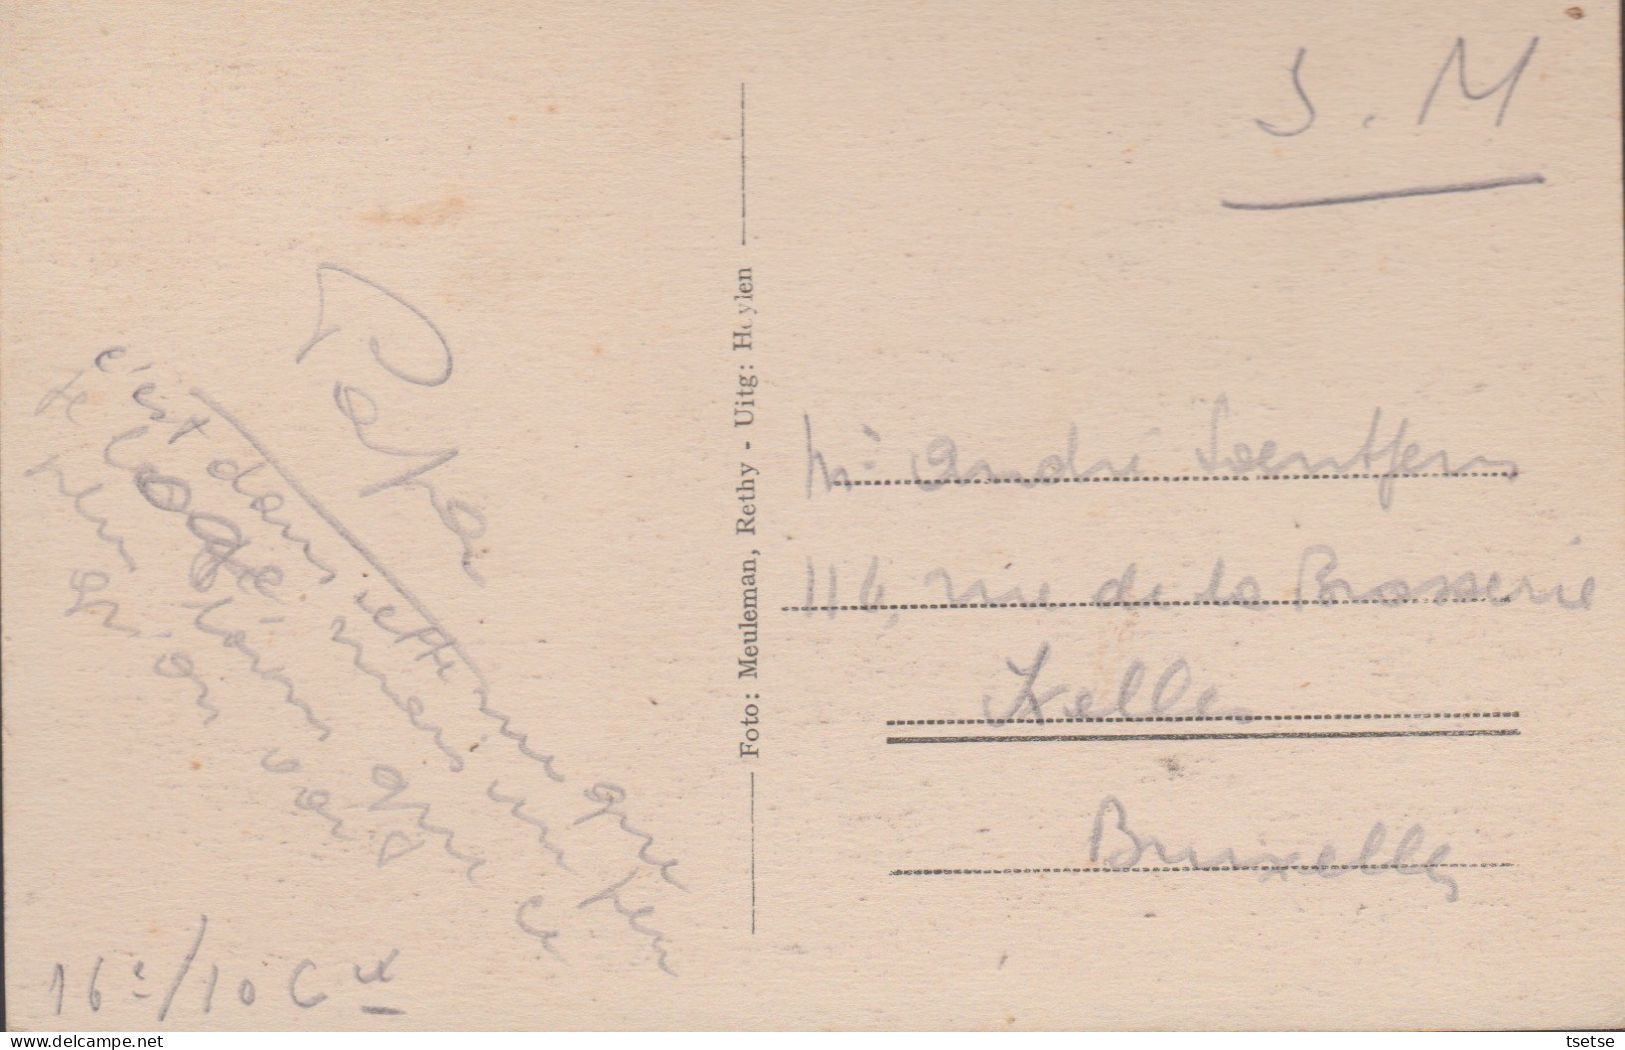 S.M
Papa
c'est dans cette rue que
je loge mais un peu
plus loin que ce
16e/10 Cie
Foto: Meuleman, Rethy - Uitg: Heylen
Mr André
116, rue de la Brasserie
Ixelles
Bruxelles
delcampe.net
tsetse